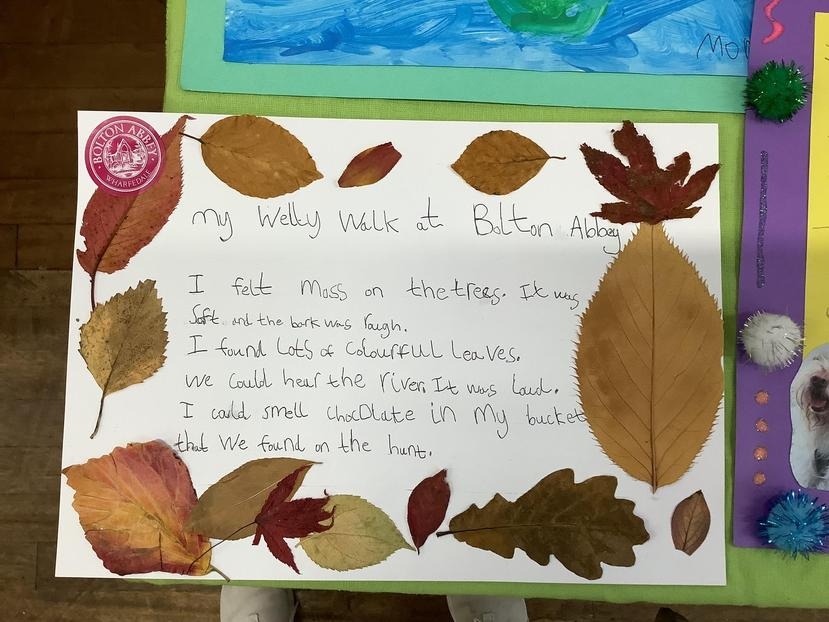 Mor
BOLTON ABBEY
WHARFEDALE
my Welly Walk at Bolton Abbey
I felt moss on the trees. It was
Soft and the bark was rough.
I found Lots of Colourful Leaves.
We Could hear the river. It was Loud.
I could smell chocolate in my bucket
that We found on the hunt.